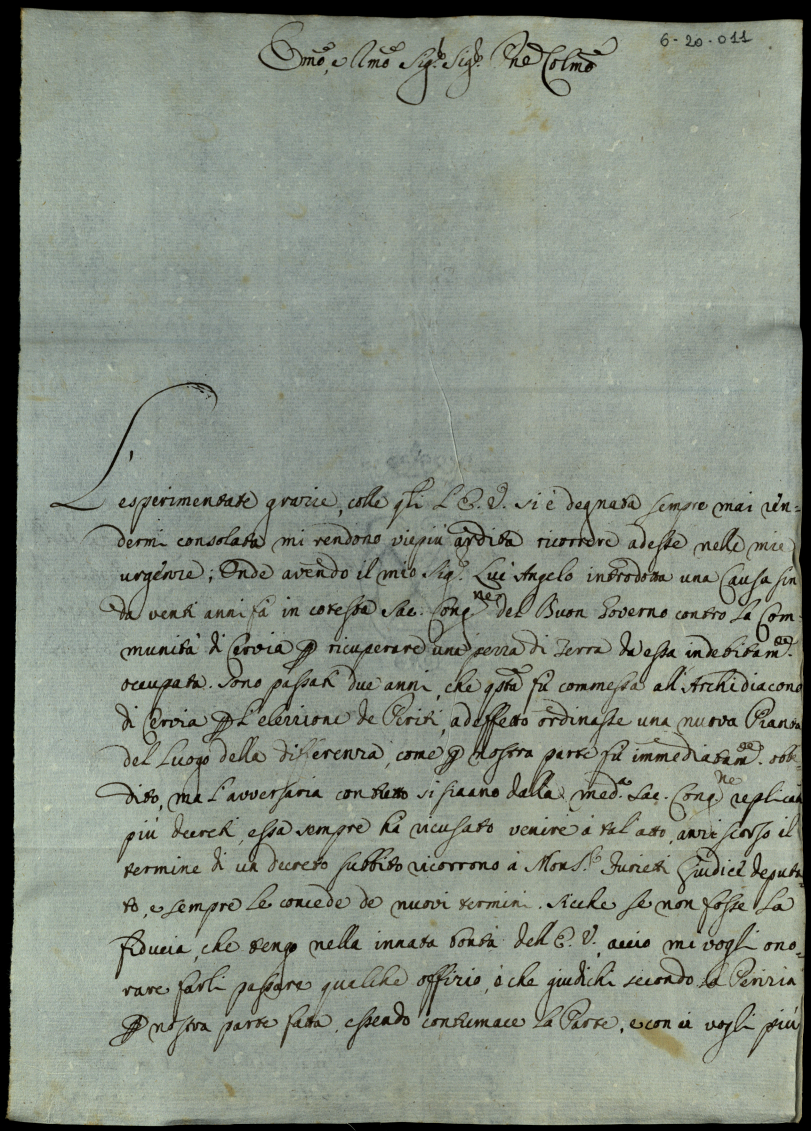 6-20-011
Emo, e Rmo Sigr. Sigr. Pne Colmo
L'esperimentate grazie, colle qli L'E. V. si è degnata sempre mai ren=
dermi consolata mi rendono viepiù ardita ricorrere adesso nelle mie
urgenze; Onde avendo il mio Sigr. Luc'Angelo introdotta una Causa sin
da venti anni fà in cotesta Sac. Congne del Buon Governo contro la Com=
munità di Cervia per ricuperare una pezza di Terra da essa indebitamte.
occupata. Sono passati due anni, che qsta fù commessa all'Archidiacono
di Cervia per l'elezzione de Periti, ad effetto ordinasse una nuova Pianta
del Luogo della differenza, come per nostra parte fù immediatamte. obbe=
dito, ma l'avversaria con tutto si siano dalla meda. Sac. Congne replicati
più decreti, essa sempre hà ricusato venire à tal atto, anzi scorso il
termine di un decreto subbito ricorrono à Monsr. Furieti Giudice deputa=
to, e sempre le concede de nuovi termini. Sicche se non fosse la
fiducia, che tengo nella innata bontà dell'E. V. accio mi vogli ono=
rare farli passare qualche offizio, ò che giudichi secondo la Perizia
per nostra parte fatta, essendo contumace la Parte, e con ci vogli più